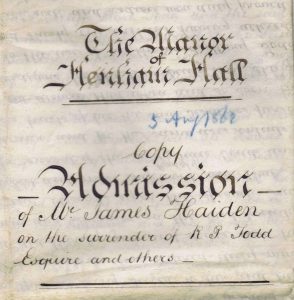 The Manor
of
Henham Hall
5 Aug 1862
Copy
Admission
of Mr James Haiden
on the surrender of R P Todd
Esquire and others